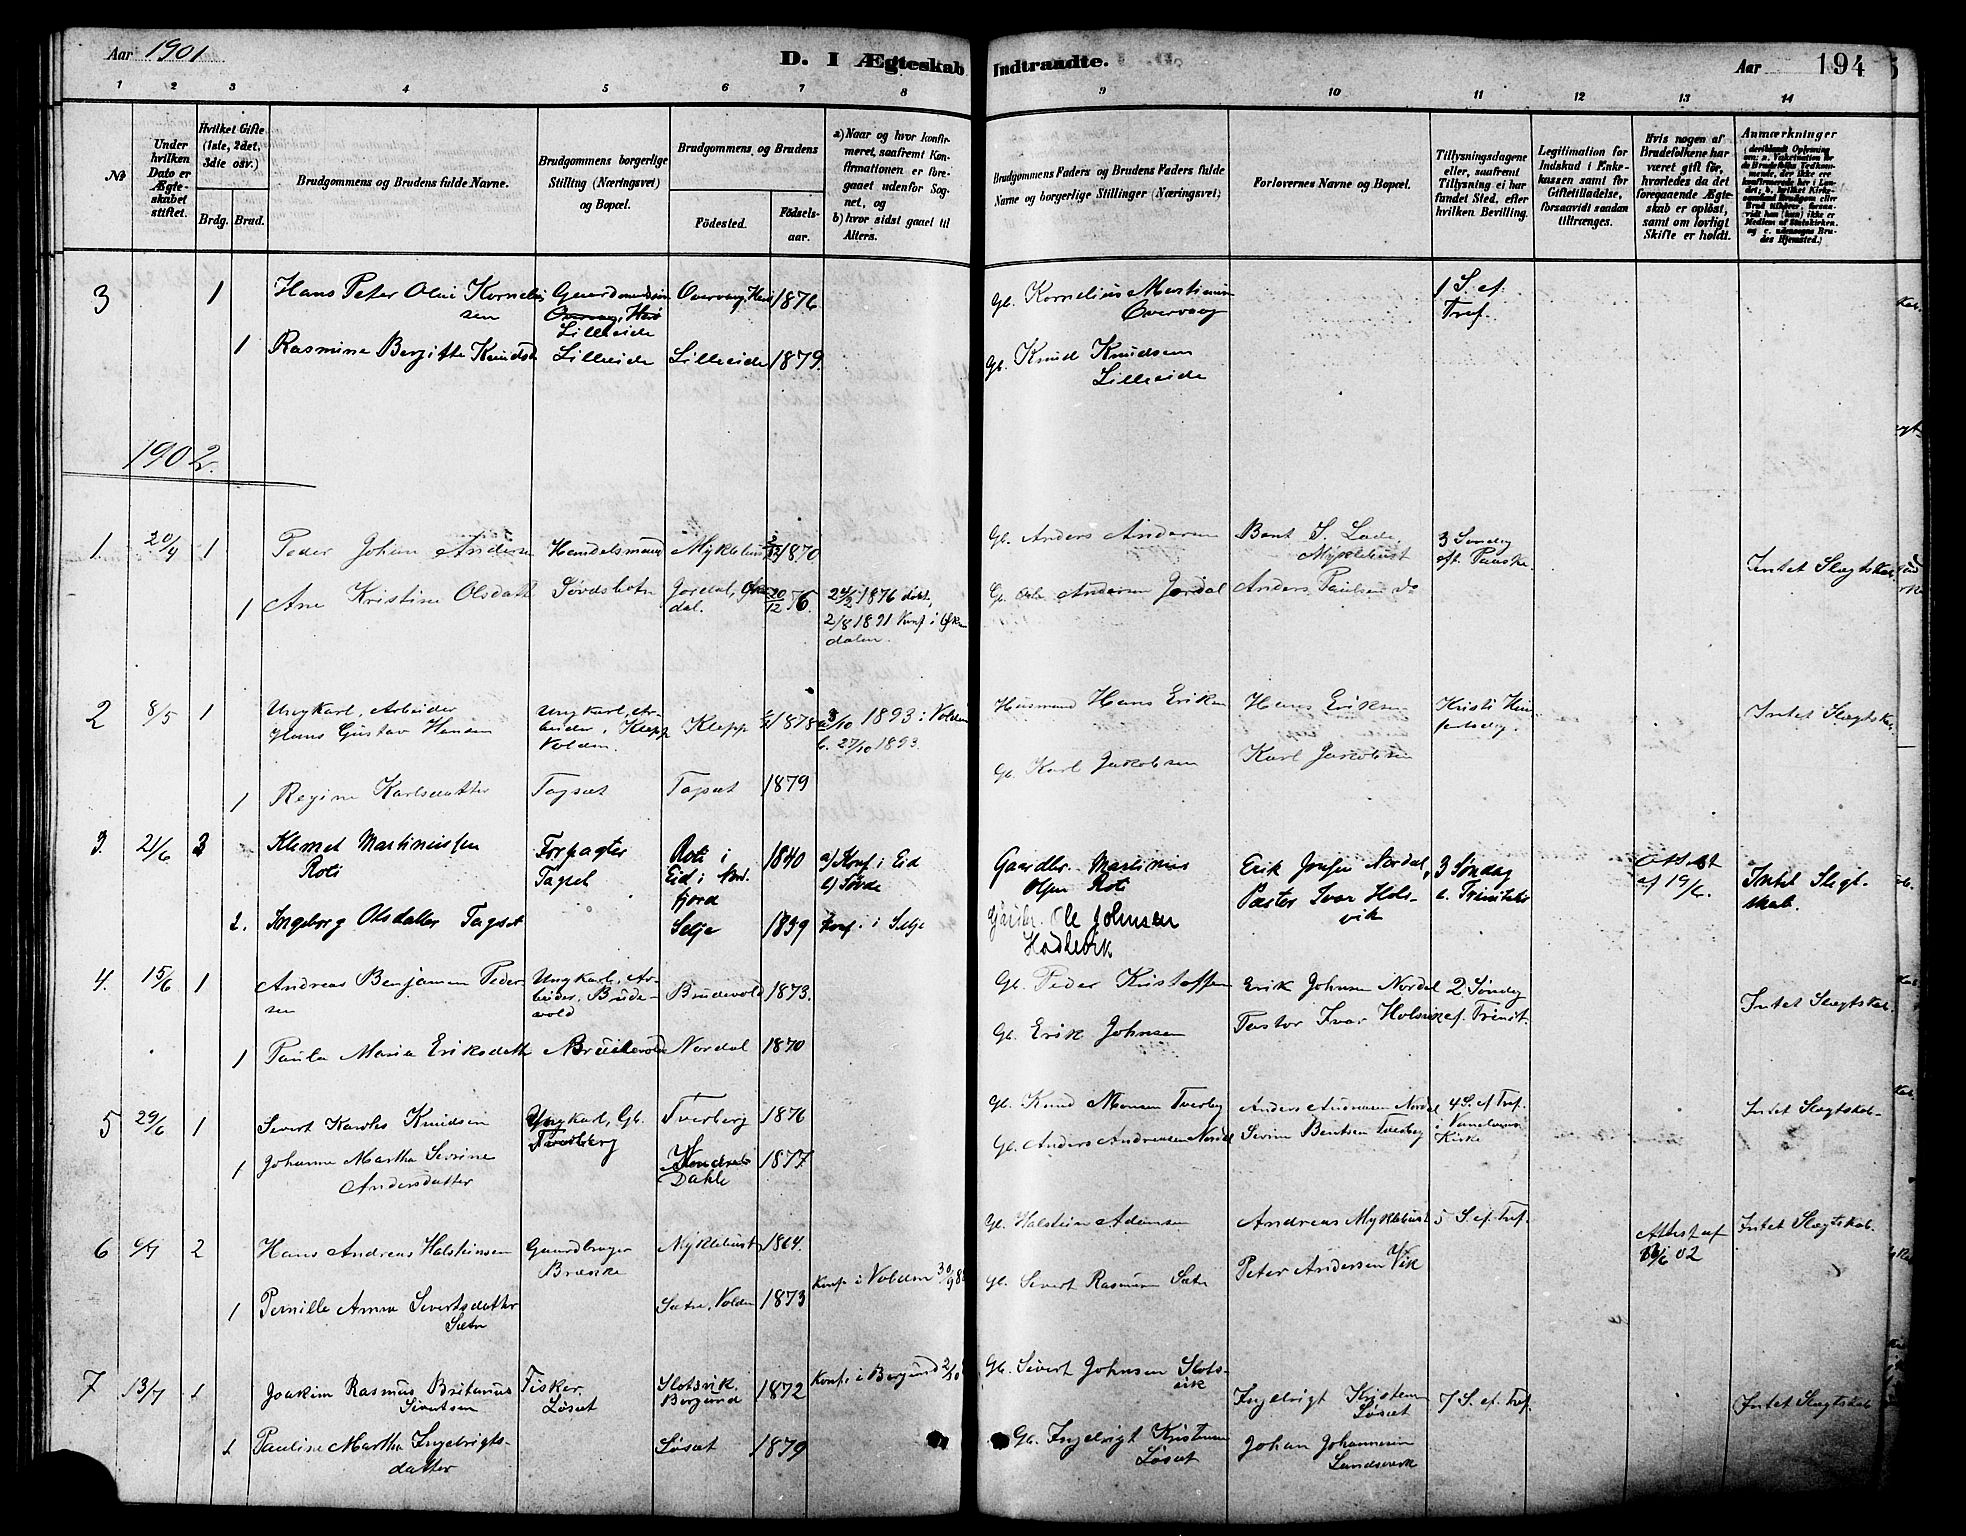 Aar 1901
D. I Ægteskab Indtraadte.
Aar
194
1 2 3 4 5 6 7 8 9 10 11 12 13 14
No
Under hvilken Dato er Ægteskabet stiftet.
Hvilket Gifte (1ste, 2det, 3die osv.)
Brdg. Brud.
Brudgommens og Brudens fulde Navne.
Brudgommens borgerlige Stilling (Næringsvei) og Bopæl.
Brudgommens og Brudens
Födested.
Födselsaar.
a) Naar og hvor konfirmeret, saafremt Konfirmationen er foregaaet udenfor Sognet, og
b) hvor sidst gaaet til Alters.
Brudgommens Faders og Brudens Faders fulde Navne og borgerlige Stillinger (Næringsvei)
Forlovernes Navne og Bopæl.
Tillysningsdagene eller, saafremt Tillysning ei har fundet Sted, efter hvilken Bevilling.
Legitimation for Indskud i Enkekassen samt for Giftetilladelse, forsaavidt saadan tiltrænges.
Hvis nogen af Brudefolkene har været gift för, hvorledes da det foregaaende Ægteskab er oplöst, samt om lovligt Skifte er holdt.
Anmærkninger
3 1 Hans Peter Oluf Kornelius
sen
Gaardmandssön
Lilleeide
Overvaag, Herö 1876
Gb. Kornelius Martinus
Overvaag
1 S. ef.
Tref.
1 Rasmine Bergitte Knudsd Lilleeide Lilleeide 1879.
Gb. Knud Knudsen
Lilleeide
1902.
1. 20/4 1 Peder Johan Andersen Handelsmand Myklebust 1870
Gb. Anders Andersen
Bent S. Lade,
Myklebust
3 Söndag
eft. Paaske
Intet Slægtskab
1 Ane Kristine Olsdatt Sövdsbotn Jordal, Öksendal. 20/12 76.
24/2 1876 döbt,
2/8 1891 Konf i Öksendalen.
Gb. Ole Andersen Jordal Anders Paulsen do
2 8/5 1 Ungkarl, Arbeider
Hans Gustav Hansen
Ungkarl, Arbeider, Klepp
Volden.
Klepp 1878
3/10 1893 i Volden
b. 27/10 1893.
Husmand Hans Eriksen Hans Eriksen
Kristi Himmelfartsdag.
Intet Slægtskab
1 Regine Karlsdatter Tagset Tagset 1879
Gb. Karl Jakobsen Karl Jakobsen
3. 21/6 2 Klemet Martinussen
Roti
Forpagter
Tagset
Roti i
Eid i Nordfjord
1840
a) Konf i Eid
b) Sövde
Gaardbr. Martinus
Olsen Roti
Erik Jonsen Nordal,
Pastor Ivar Holsvik
3 Söndag
e. Trinitatis
Attest
af 19/6.
Intet Slegtskab.
2. Ingeborg Olsdatter Tagset Selje 1839 Konf. i Selje
Gaardbr. Ole Johnsen
Hodlevik
4. 15/6 1 Andreas Benjamin Pedersen
Ungkarl, Arbeider, Brudevold
Brudevold 1873.
Gb. Peder Kristoffersen
Erik Johnsen Nordal 2 Söndag
Intet Slægtskab.
1 Paula Maria Eriksdatt Brudevold Nordal 1870
Gb. Erik Johnsen
Pastor Ivar Holsvik ef. Trinit.
5 29/6 1 Sivert Karolus Knudsen
Ungkarl, Gb.
Tverberg
Tverberg 1876
Gb. Knud Monsen Tverberg
Anders Andreasen Nordal 4 S. ef Tref.
i Vanelvens
Kirke
Intet Slægtskab
1 Johanne Martha Sevrine
Andersdatter
Dahle 1877
Gb. Anders Andreasen Nordal
Sevrin Bentsen Tverberg
6 6/7 2 Hans Andreas Halstensen Gaardbruger
Bræsike
Myklebust 1864.
Gb. Halstein Adamsen
Andreas Myklebust 5 S. ef. Tref.
Attest af
/6 02
Intet Slægtskab.
1 Pernille Anna Sivertsdatter
Sætre
Sætre, Volden 1873
Konf. i Volden 30/9 8
Gb. Sivert Rasmusen Sætre
Peter Andersen Vik
7 13/7 1 Joakim Rasmus Britanus
Sivertsen
Fisker
Löset
Slotsvik.
Borgund
1872
Konf. i Borgund 2/10
Gb. Sivert Johnsen Slotsvik
Ingebrigt Kristensen
Löset
7 S. ef. Tref.
Intet Slægtskab
1 Pauline Martha Ingebrigtsdatter
Löset 1879
Gb. Ingebrigt Kristensen
Löset
Johan Johannesen
Landsverk